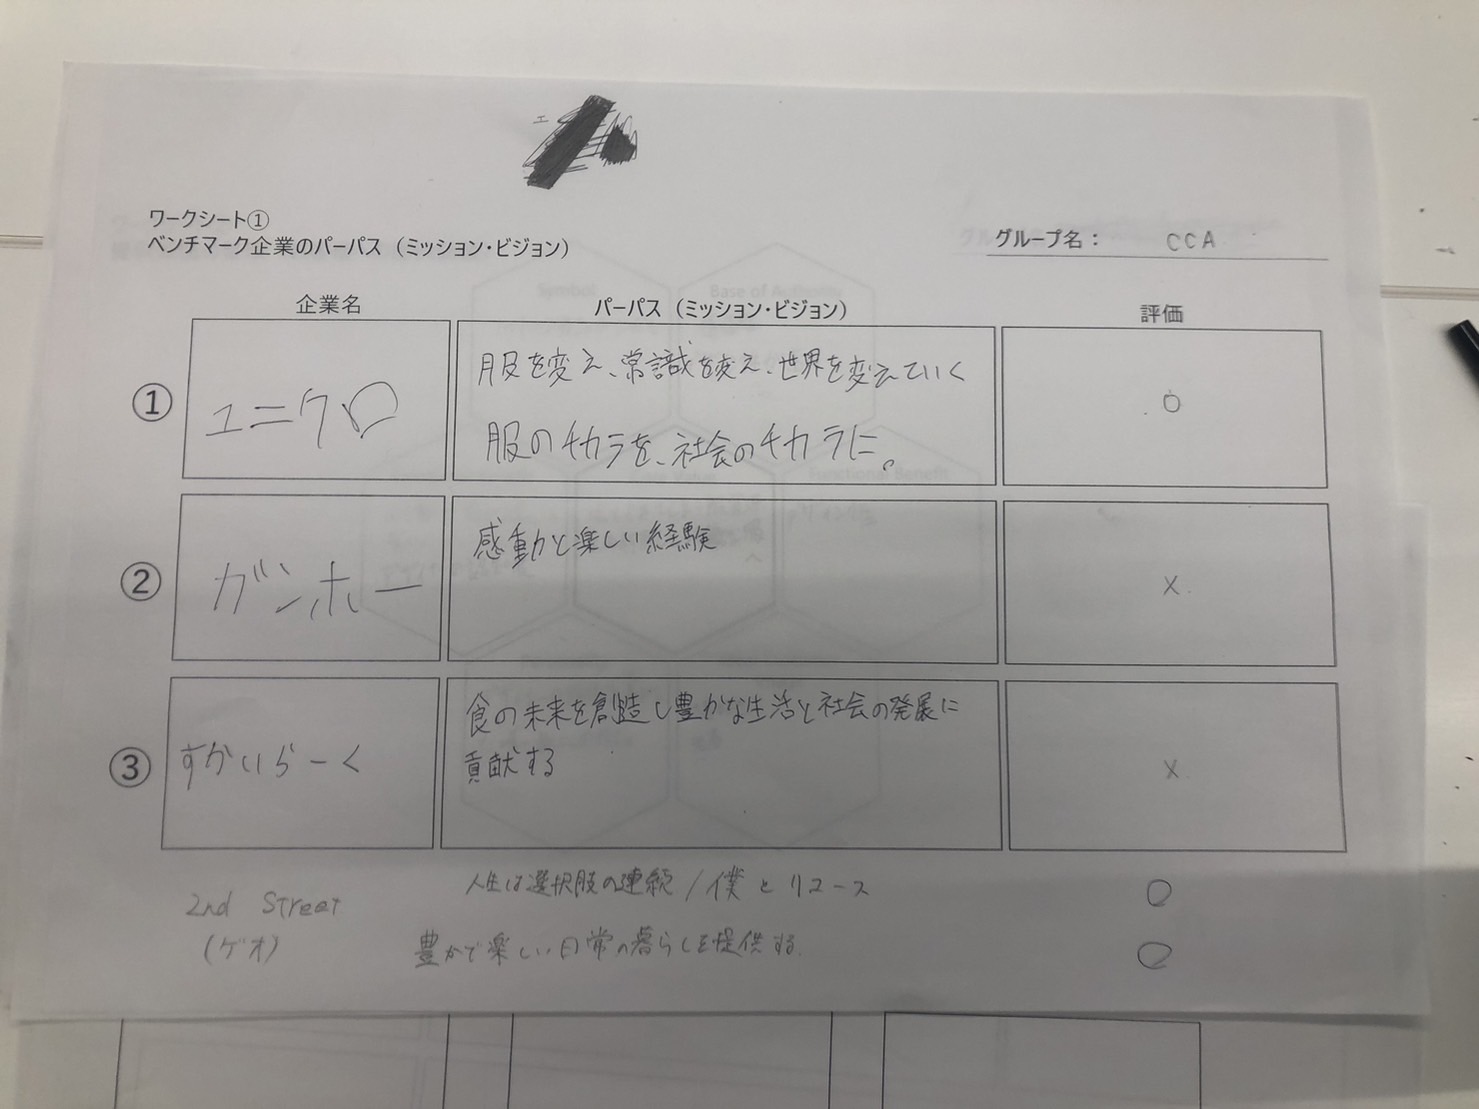 ワークシート①
ベンチマーク企業のパーパス（ミッション・ビジョン）
グループ名： CCA
企業名 パーパス（ミッション・ビジョン） 評価
① ユニクロ 服を変え、常識を変え、世界を変えていく ○
服のチカラを、社会のチカラに。
② ガンホー 感動と楽しい経験 ×
③ すかいらーく 食の未来を創造し豊かな生活と社会の発展に ×
貢献する
2nd Street 人生は選択服の連続/僕とリユース ○
(ゲオ) 豊かで楽しい日常の暮らしを提供する ○